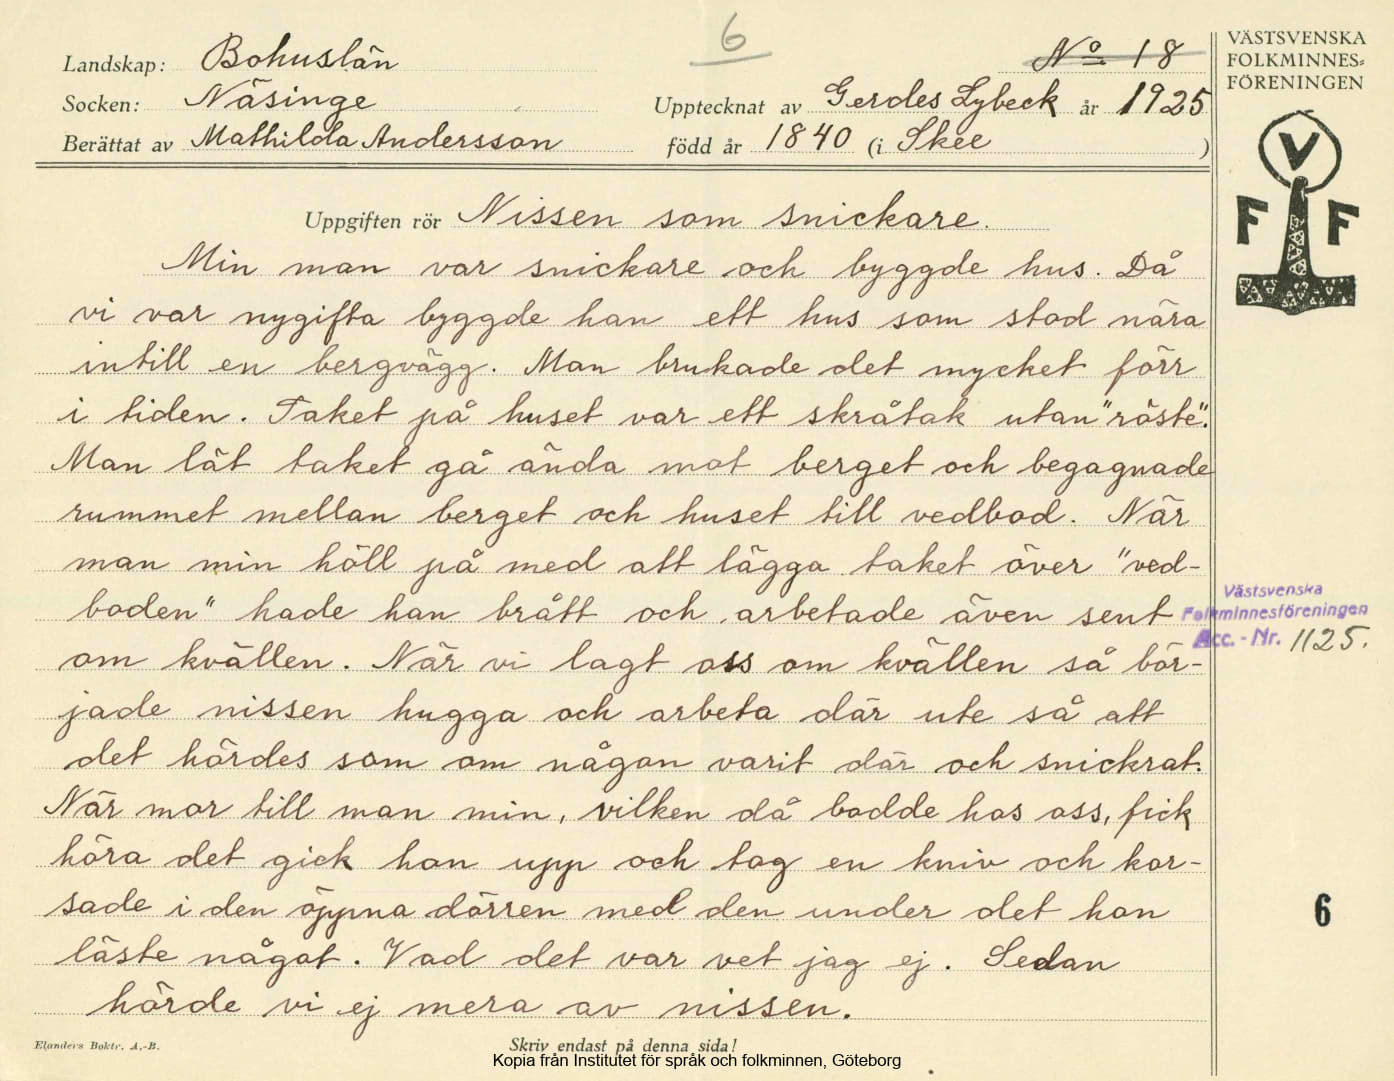 6
Landskap: Bohuslän
No 18
Socken: Näsinge
Upptecknat av Gerdes Lybeck år 1925
Berättat av Mathilda Andersson
född år 1840 (i Skee )
VÄSTSVENSKA
FOLKMINNES=
FÖRENINGEN
V
F F
Uppgiften rör Nissen som snickare.
Min man var snickare och byggde hus. Då
vi var nygifta byggde han ett hus som stod nära
intill en bergvägg. Man brukade det mycket förr
i tiden. Taket på huset var ett skråtak utan "röste".
Man lät taket gå ända mot berget och begagnade
rummet mellan berget och huset till vedbod. När
man min höll på med att lägga taket över "ved-
boden" hade han brått och arbetade även sent
om kvällen. När vi lagt oss om kvällen så bör-
jade nissen hugga och arbeta där ute så att
det hördes som om någon varit där och snickrat.
När mor till man min, vilken då bodde hos oss, fick
höra det gick hon upp och tog en kniv och kor-
sade i den öppna dörren med den under det hon
läste något. Vad det var vet jag ej. Sedan
hörde vi ej mera av nissen.
Västsvenska
Folkminnesföreningen
Acc. - Nr. 1125.
6
Elanders Boktr. A.-B.
Skriv endast på denna sida!
Kopia från Institutet för språk och folkminnen, Göteborg